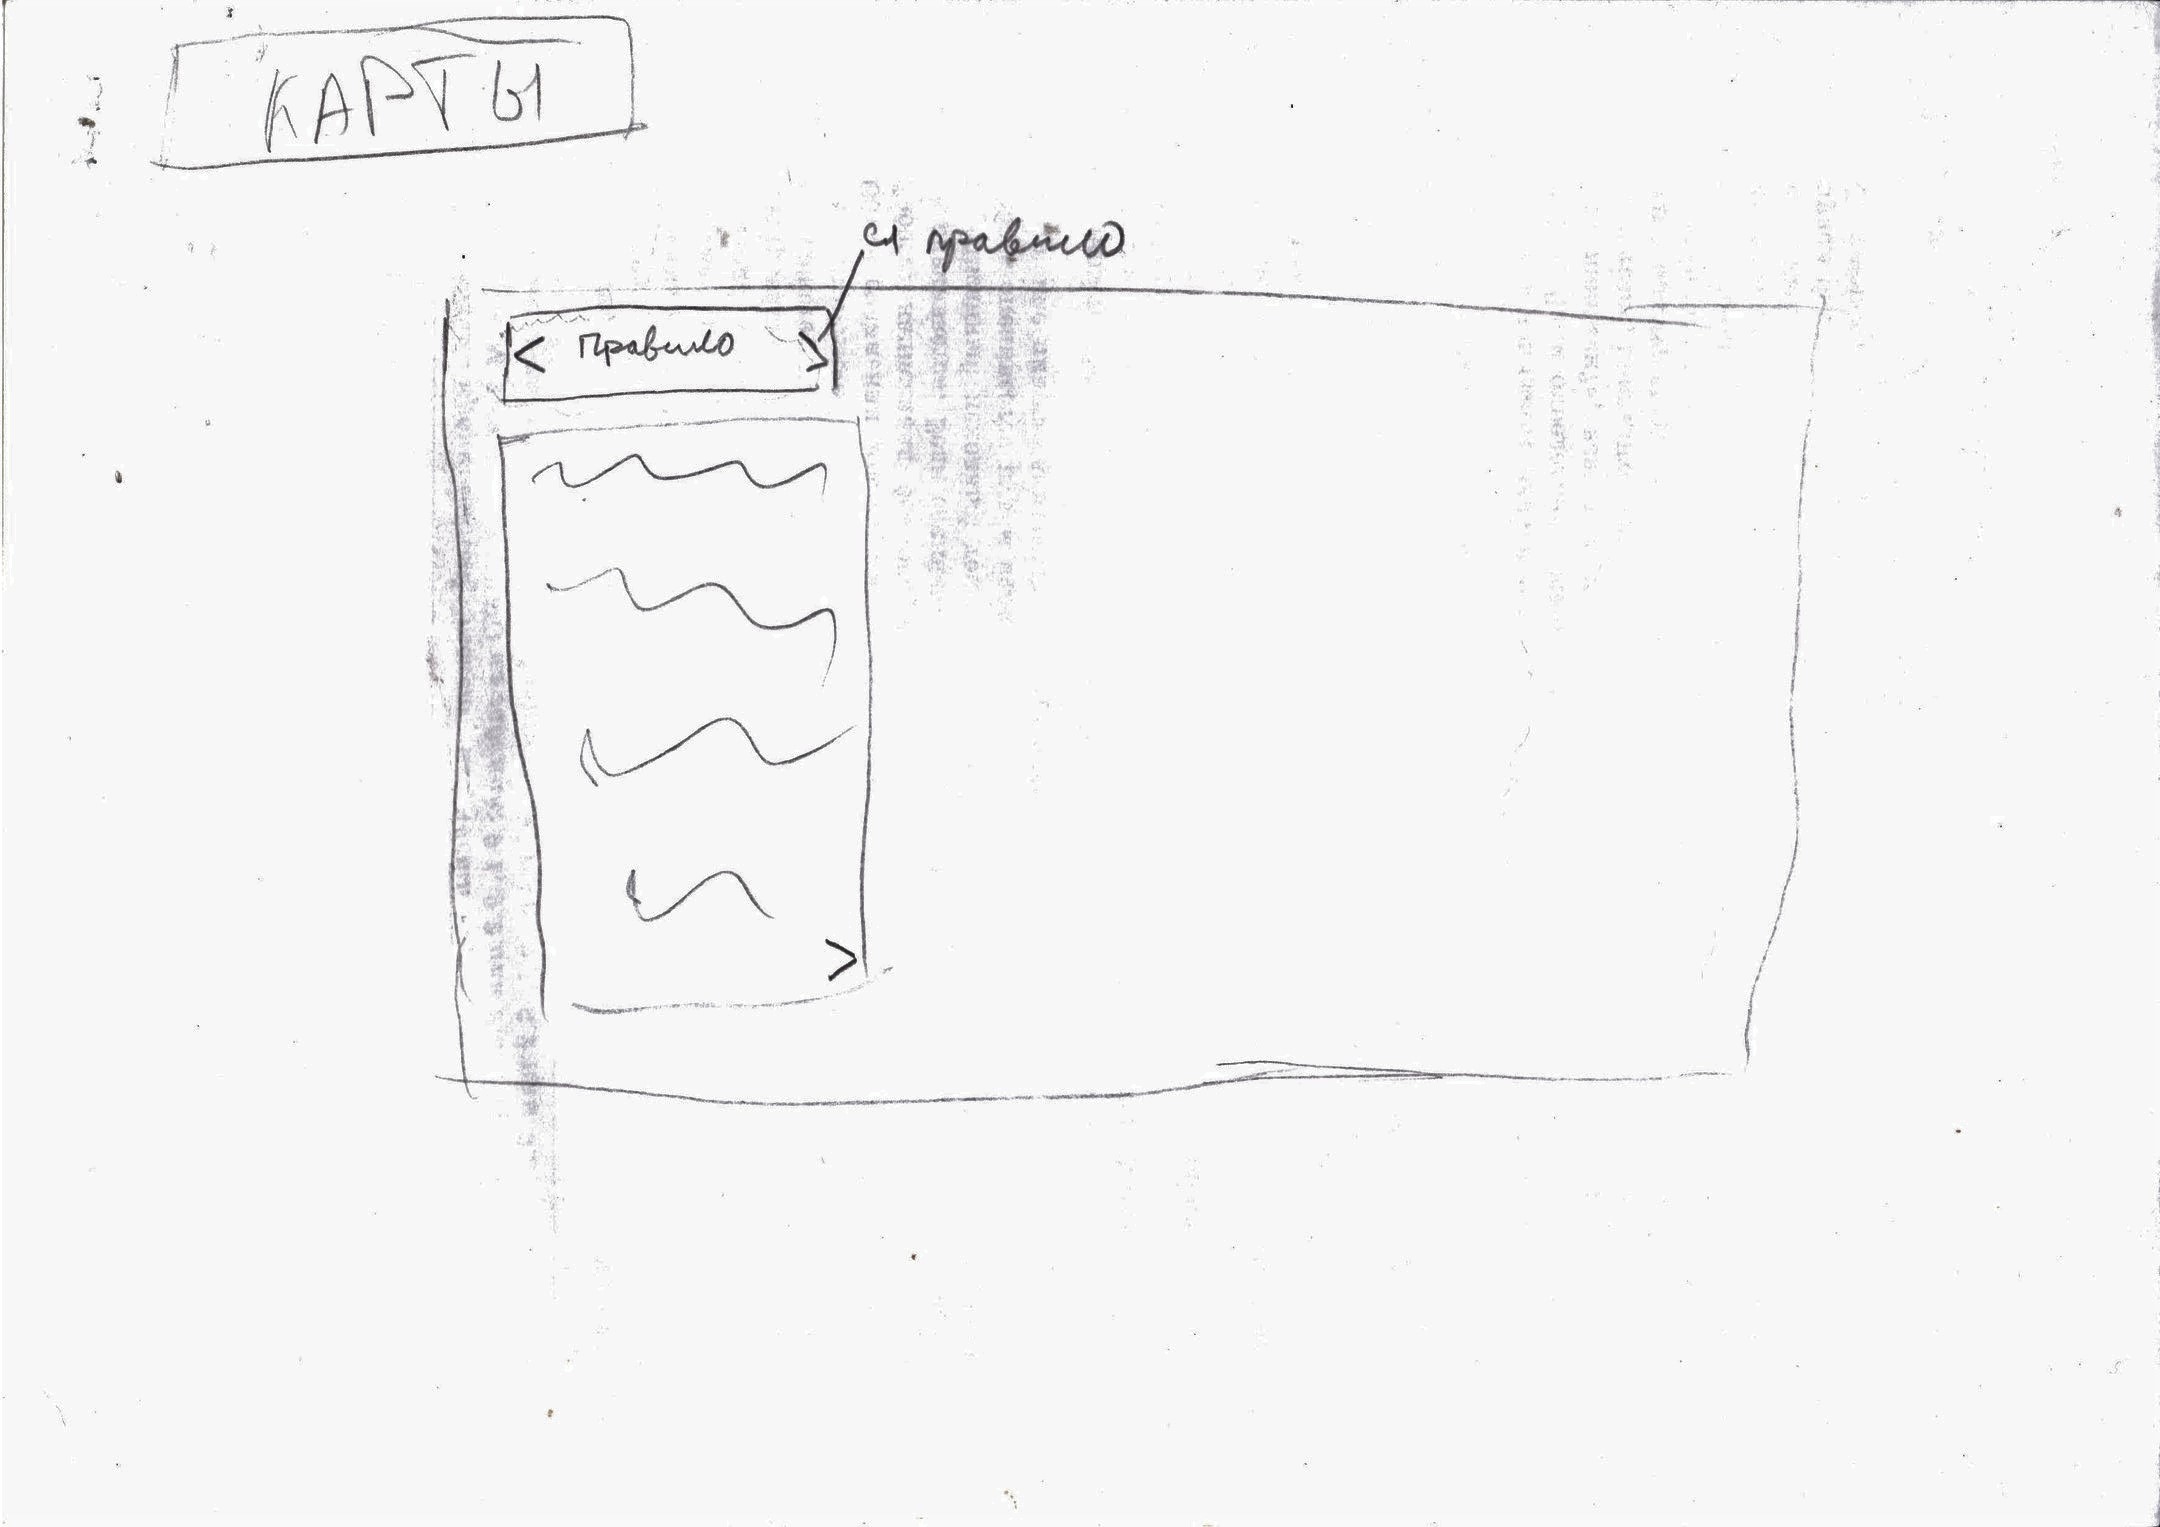 КАРТЫ
сл правило
< правило >
>